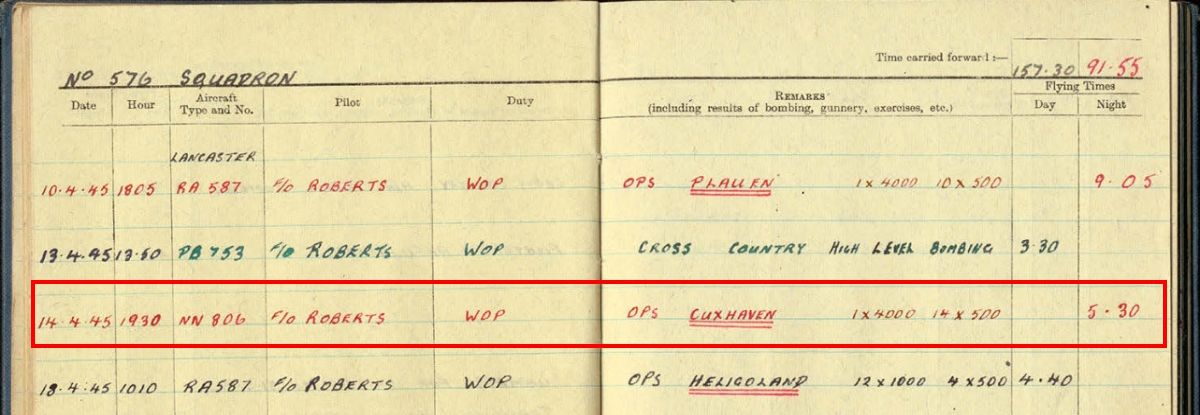 Time carried forward :— 157.30 91.55
No 576 SQUADRON
Date Hour Aircraft Type and No. Pilot Duty REMARKS (including results of bombing, gunnery, exercises, etc.) Flying Times Day Night
LANCASTER
10.4.45 1805 RA 587 F/O ROBERTS WOP OPS PLAUEN 1 x 4000 10 x 500 9.05
13.4.45 1350 PB 753 F/O ROBERTS WOP CROSS COUNTRY HIGH LEVEL BOMBING 3.30
14.4.45 1930 NN 806 F/O ROBERTS WOP OPS CUXHAVEN 1 x 4000 14 x 500 5.30
18.4.45 1010 RA 587 F/O ROBERTS WOP OPS HELIGOLAND 12 x 1000 4 x 500 4.40